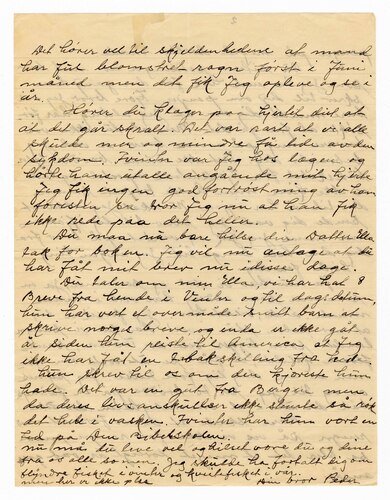 Det hører vel til skjeldenhedene at mand
har ful blomstret ragn først i Juni
måned men det fik Jeg opleve og se i
år.
Hører du klager paa hjertet dit at
at det går skralt. Det var rart at vi alle
skulde mer og mindre få lide av den
sykdom. I vinter var Jeg hos lægen og
hørte hans utalle angående mit hjerte
Jeg fik ingen god fortrøstning av ham
foresten så tror Jeg nu at han fik
ikke rede paa det heller.
Du maa nu bare hilse din Datter Ella
tak for boken. Jeg vil nu antage at du
har fåt mit brev nu i disse dage.
Du taler om min Ella, vi har hat 8
Breve fra hende i Vinter og til dags datum,
hun har vert et overmåde snilt barn at
skrive norge breve, og enda er ikke gåt
år siden hun reiste til America at Jeg
ikke har fåt en Tobakskilling fra hende
hun skrev til os om den kjæreste hun
hade. Det var en gut fra Bergen men
da deres livsanskuelser ikke stemte så røk
det hele i vasken. I vinter har hun vert en
tid på Den Bibelskolen.
nu må du leve vel og hilset vore du og dine
fra os alle sammen. Jeg skulde ha fortalt dig om
Fisket i vinter og kveitefisket i vår.
men her er ikke plas Din bror Peder